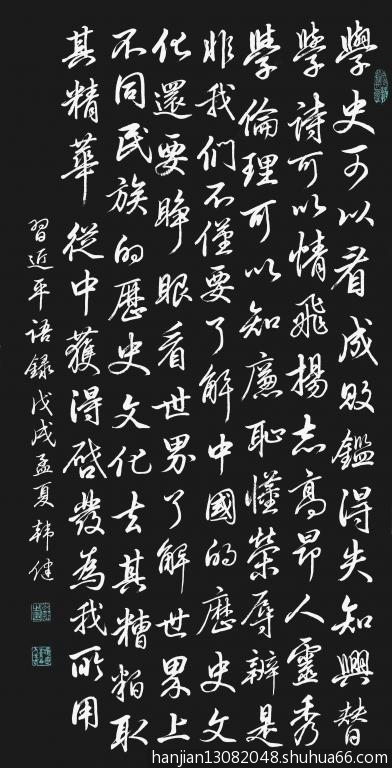 學史可以看成敗鑑得失知興替
學詩可以情飛揚志高昂人靈秀
學倫理可以知廉恥懂榮辱辨是
非我們不僅要了解中國的歷史文
化還要睜眼看世界了解世界上
不同民族的歷史文化去其糟粕取
其精華從中獲得啓發為我所用
習近平語錄戊戌孟夏韓健
hanjian13082048.shuhua66.com